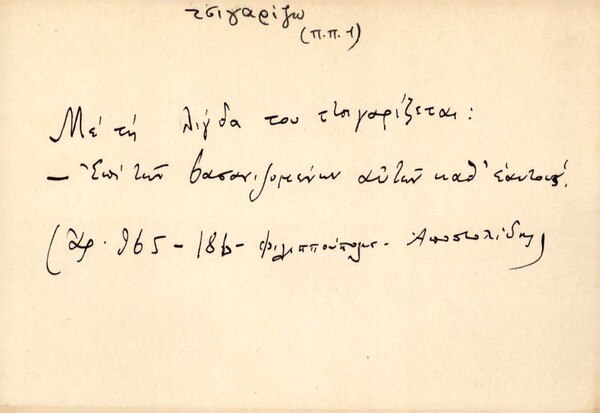 τσιγαρίζω
(Π.Π. 1)
Μέ τή λίγδα του τσιγαρίζεται:
– Ἐπί τῶν βασανιζομένων αὐτῶν καθ' ἑαυτούς.
(Ἀρ. 965 – 186 – Φιλιππούπολις – Ἀποστολίδης)